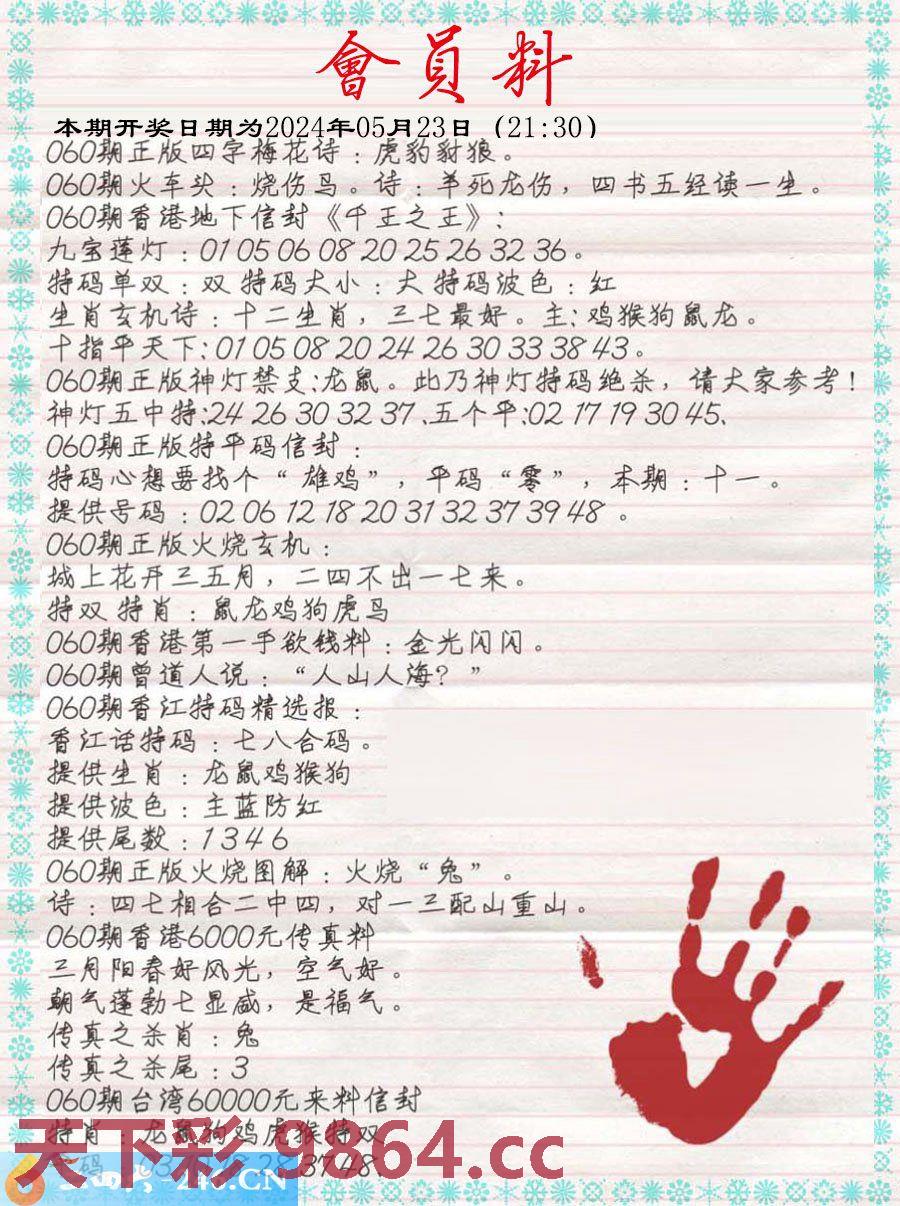 會員料
本期开奖日期为2024年05月23日（21:30）
060期正版四字梅花诗：虎豹豺狼。
060期火车头：烧伤鸟。诗：羊死龙伤，四书五经读一生。
060期香港地下信封《千王之王》：
九宝莲灯：01 05 06 08 20 25 26 32 36。
特码单双：双 特码大小：大 特码波色：红
生肖玄机诗：十二生肖，三七最好。主：鸡猴狗鼠龙。
十指平天下：01 05 08 20 24 26 30 33 38 43。
060期正版神灯禁支：龙鼠。此乃神灯特码绝杀，请大家参考！
神灯五中特：24 26 30 32 37、五个平：02 17 19 30 45、
060期正版特平码信封：
特码心想要找个“雄鸡”，平码“零”，本期：十一。
提供号码：02 06 12 18 20 31 32 37 39 48 。
060期正版火烧玄机：
城上花开三五月，二四不出一七来。
特双 特肖：鼠龙鸡狗虎马
060期香港第一手欲钱料：金光闪闪。
060期曾道人说：“人山人海？”
060期香江特码精选报：
香江话特码：七八合码。
提供生肖：龙鼠鸡猴狗
提供波色：主蓝防红
提供尾数：1 3 4 6
060期正版火烧图解：火烧“兔”。
诗：四七相合二中四，对一三配山重山。
060期香港6000元传真料
三月阳春好风光，空气好。
朝气蓬勃七显威，是福气。
传真之杀肖：兔
传真之杀尾：3
060期台湾60000元来料信封
特肖：龙鼠狗鸡虎猴特双
28 37 48.
天下彩 9864.cc
246.CN